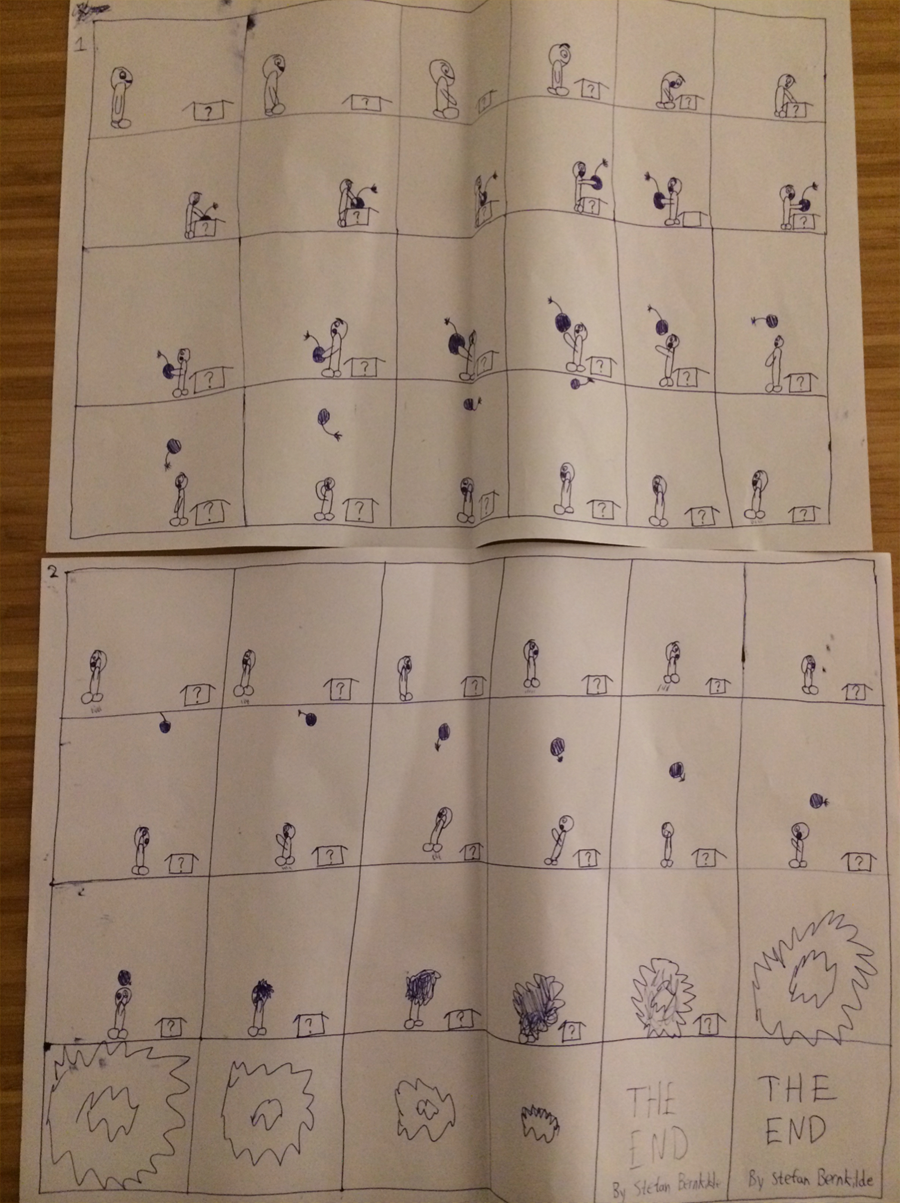 1
? ? ? ? ? ?
? ? ? ? ? ?
? ? ? ? ? ?
? ? ? ? ? ?
2
? ? ? ? ? ?
? ? ? ? ? ?
? ? ? ? ?
THE
END
By Stefan Bernkilde
THE
END
By Stefan Bernkilde